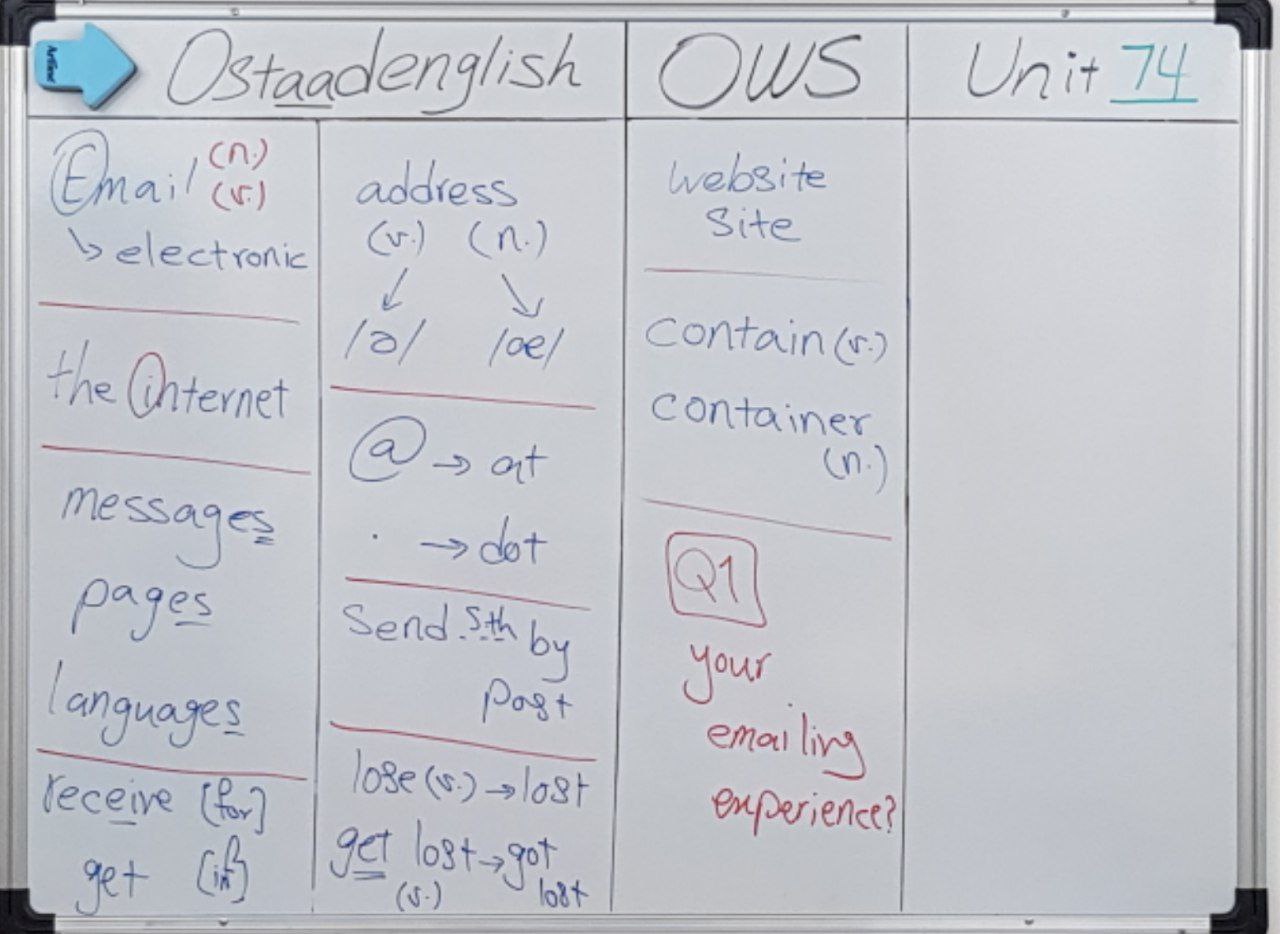 Ostaadenglish
OWS
Unit 74
Email (n.)
(v.)
↳ electronic
the internet
messages
pages
languages
receive [for]
get [inf]
address
(v.) (n.)
/ə/ /æ/
@ → at
. → dot
Send s.th by
post
lose (v.) → lost
get lost → got
(v.) lost
website
site
contain (v.)
container
(n.)
Q1
your
emailing
experience?